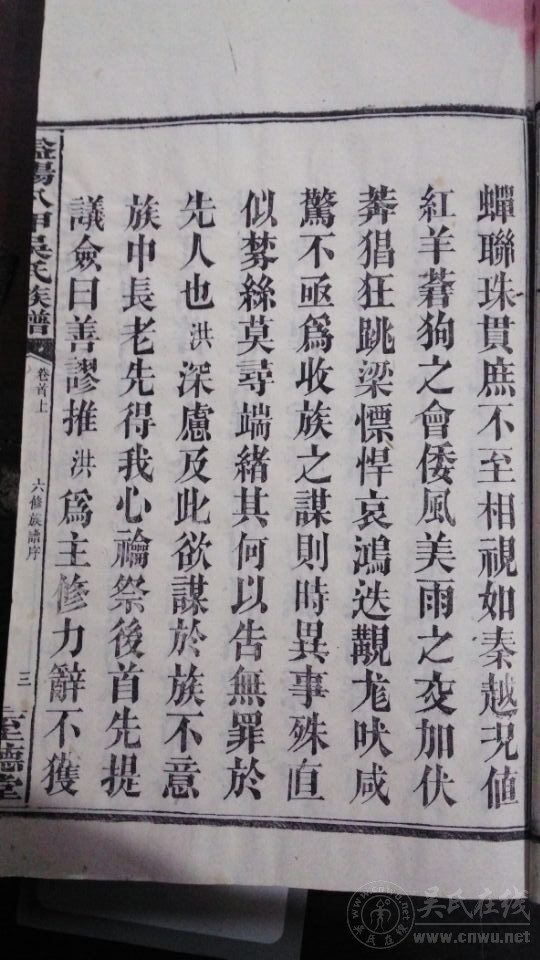 蟬聯珠貫庶不至相視如秦越況值
紅羊蒼狗之會倭風美雨之交加伏
莽猖狂跳梁慓悍哀鴻迭覯尨吠咸
驚不亟爲收族之謀則時異事殊直
似棼絲莫尋端緒其何以告無罪於
先人也洪深慮及此欲謀於族不意
族中長老先得我心禴祭後首先提
議僉曰善謬推洪爲主修力辭不獲
益陽八甲吳氏族譜
卷首上
六修族譜序
三
至德堂
吴氏在线
www.cnwu.net